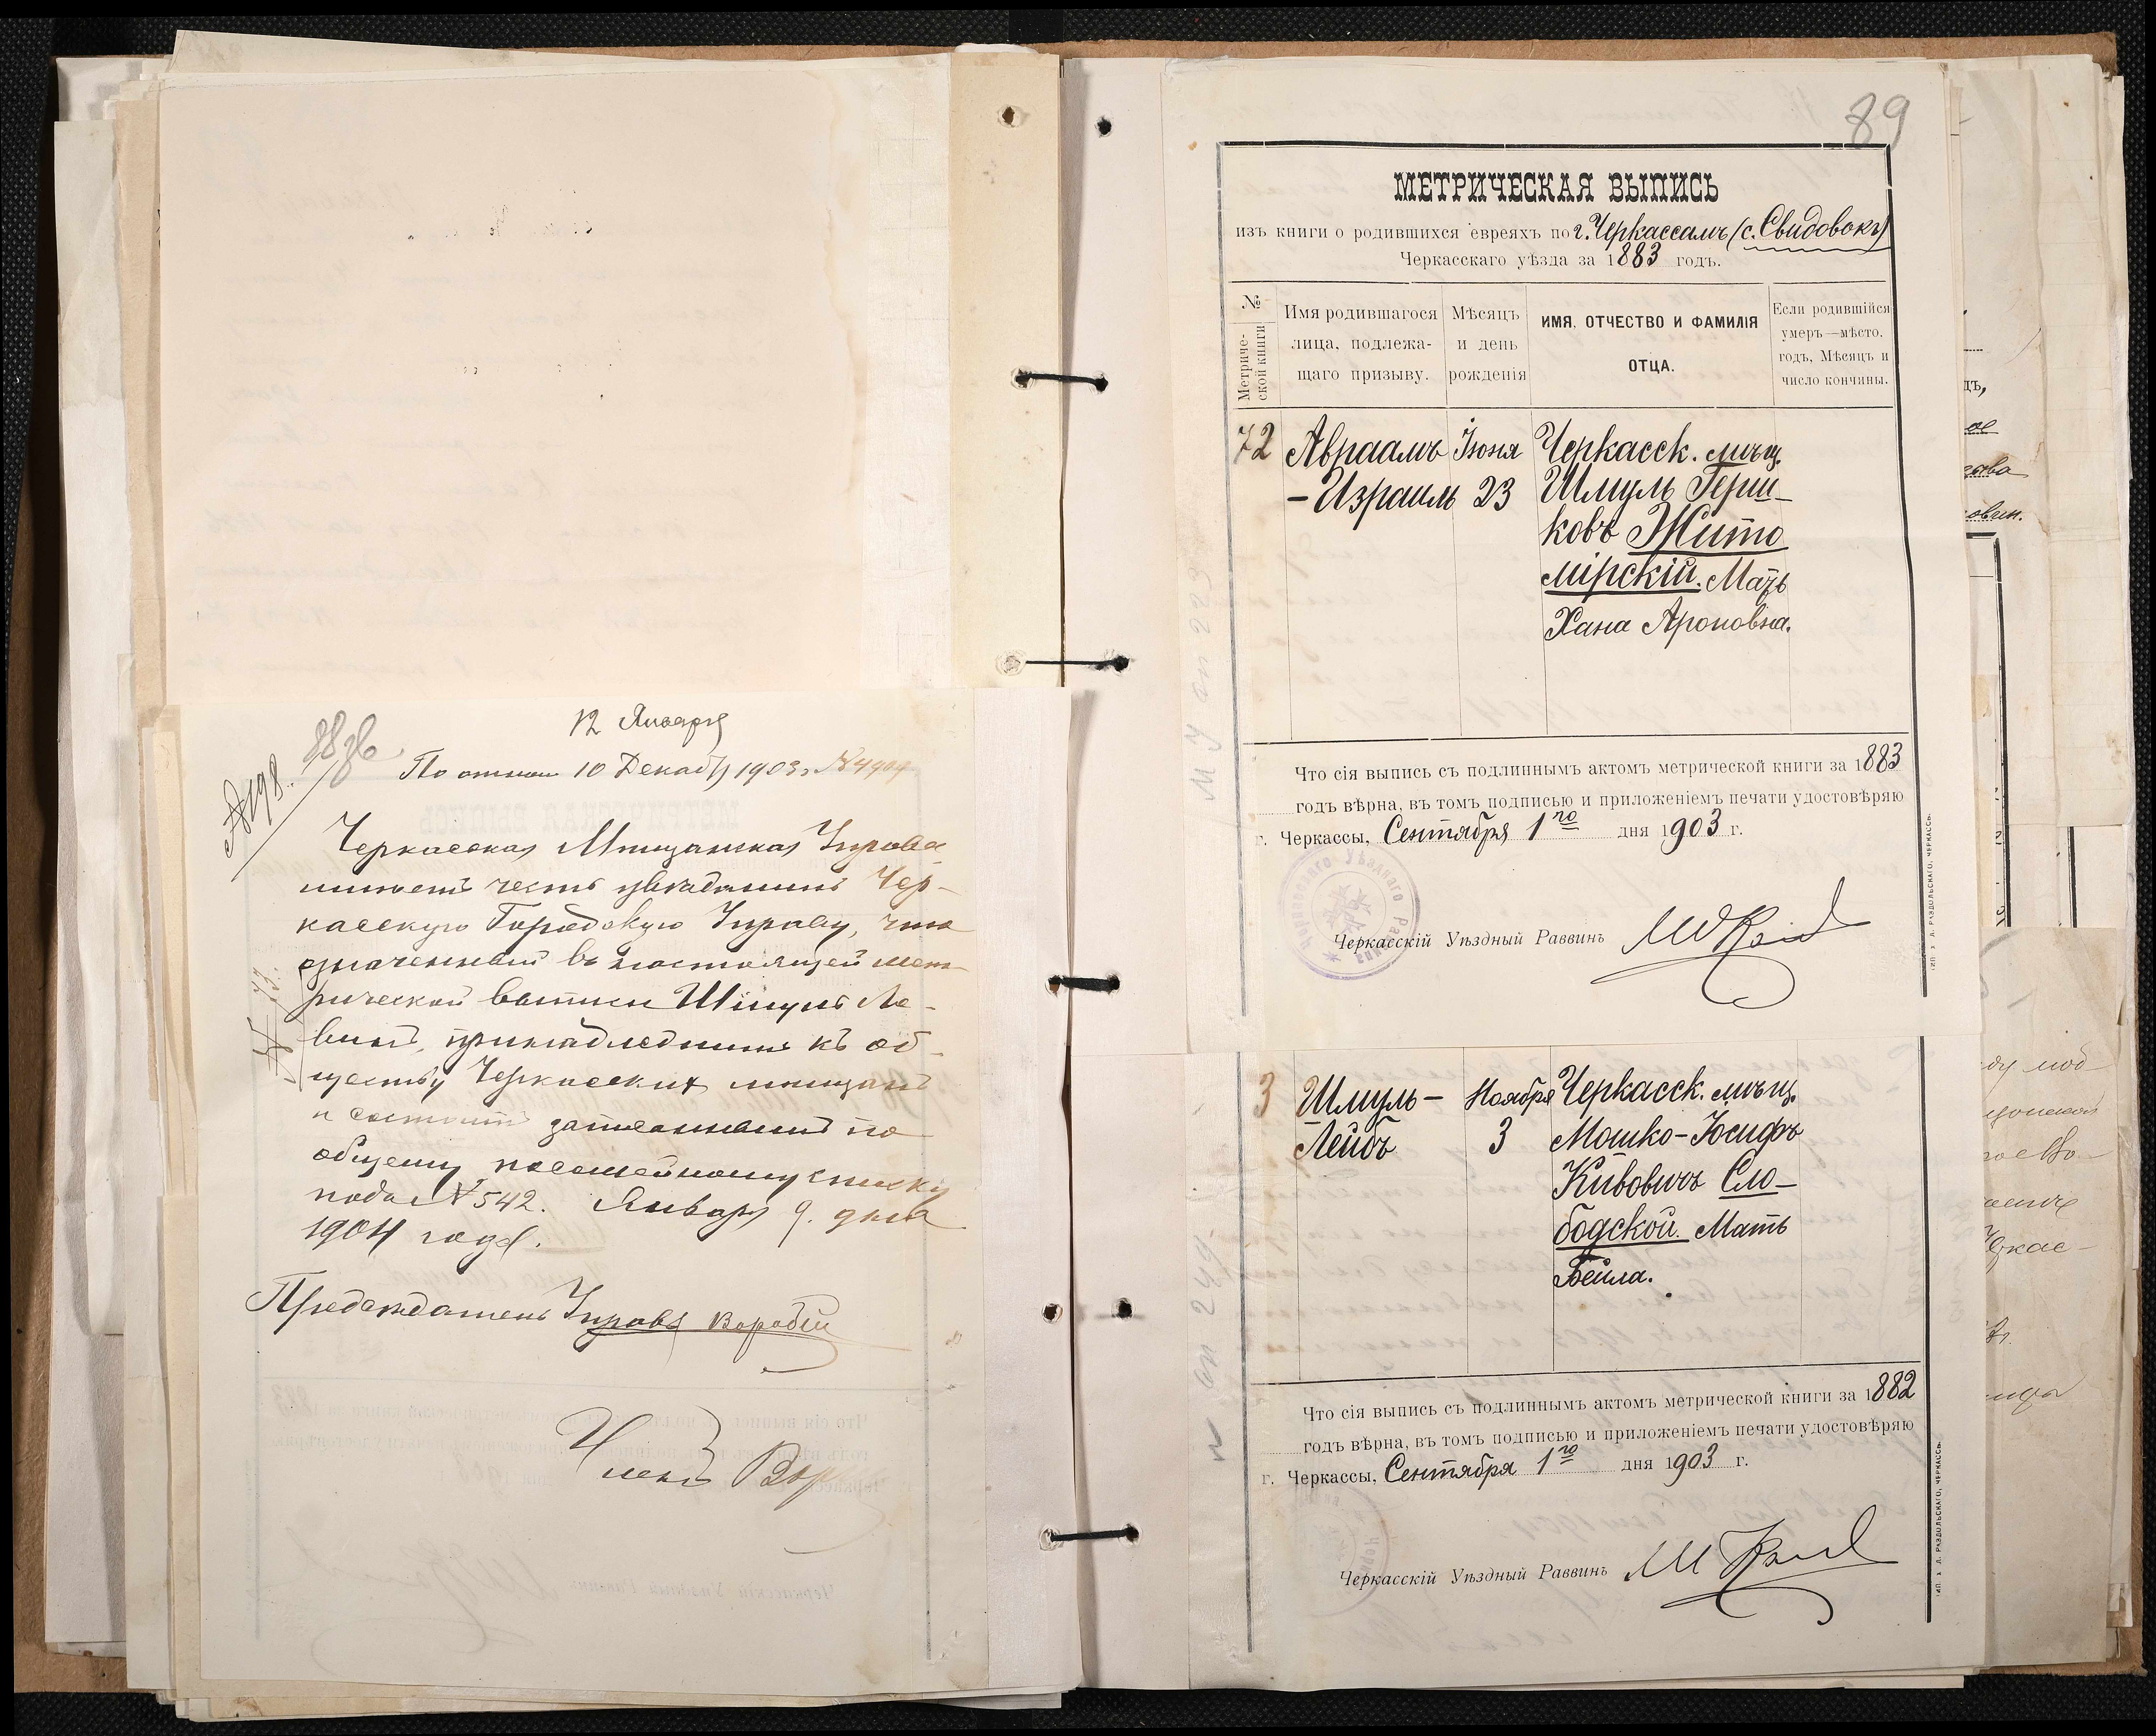 12 Января
88 зв
№198.
По отнош 10 Декабр 1903 г. №4904
Черкасская Мещанская Управа
имеетъ честь увѣдомить Чер-
касскую Городскую Управу, что
означенный въ настоящей мет-
рической выписи Шмуль Ле-
винъ, принадлежитъ къ об-
ществу Черкасскихъ мещанъ
и состоитъ записаннымъ по
общему посемейному списку
подъ №542. Января 9. дня
1904 года.
Председатель Управы Воробей
Членъ
89
МЕТРИЧЕСКАЯ ВЫПИСЬ
изъ книги о родившихся евреяхъ по г. Черкассамъ (с. Свидовокъ)
Черкасскаго уѣзда за 1883 годъ.
№ Метриче-ской книги
Имя родившагося лица, подлежа-щаго призыву.
Мѣсяцъ и день рожденія
ИМЯ, ОТЧЕСТВО И ФАМИЛІЯ ОТЦА.
Если родившійся умеръ—мѣсто, годъ, Мѣсяцъ и число кончины.
72 Авраамъ Іюня Черкасск. мѣщ.
-Израиль 23 Шмуль Герш-
ковъ Жито
мірскій. Мать
Хана Ароновна.
Что сія выпись съ подлиннымъ актомъ метрической книги за 1883
годъ вѣрна, въ томъ подписью и приложеніемъ печати удостовѣряю
г. Черкассы, Сентября 1го дня 1903 г.
Черкасскій Уѣздный Раввинъ
3 Шмуль- Ноября Черкасск. мѣщ.
Лейбъ 3 Мошко-Іосифъ
Кивовичъ Сло-
бодской. Мать
Бейла.
Что сія выпись съ подлиннымъ актомъ метрической книги за 1882
годъ вѣрна, въ томъ подписью и приложеніемъ печати удостовѣряю
г. Черкассы, Сентября 1го дня 1903 г.
Черкасскій Уѣздный Раввинъ